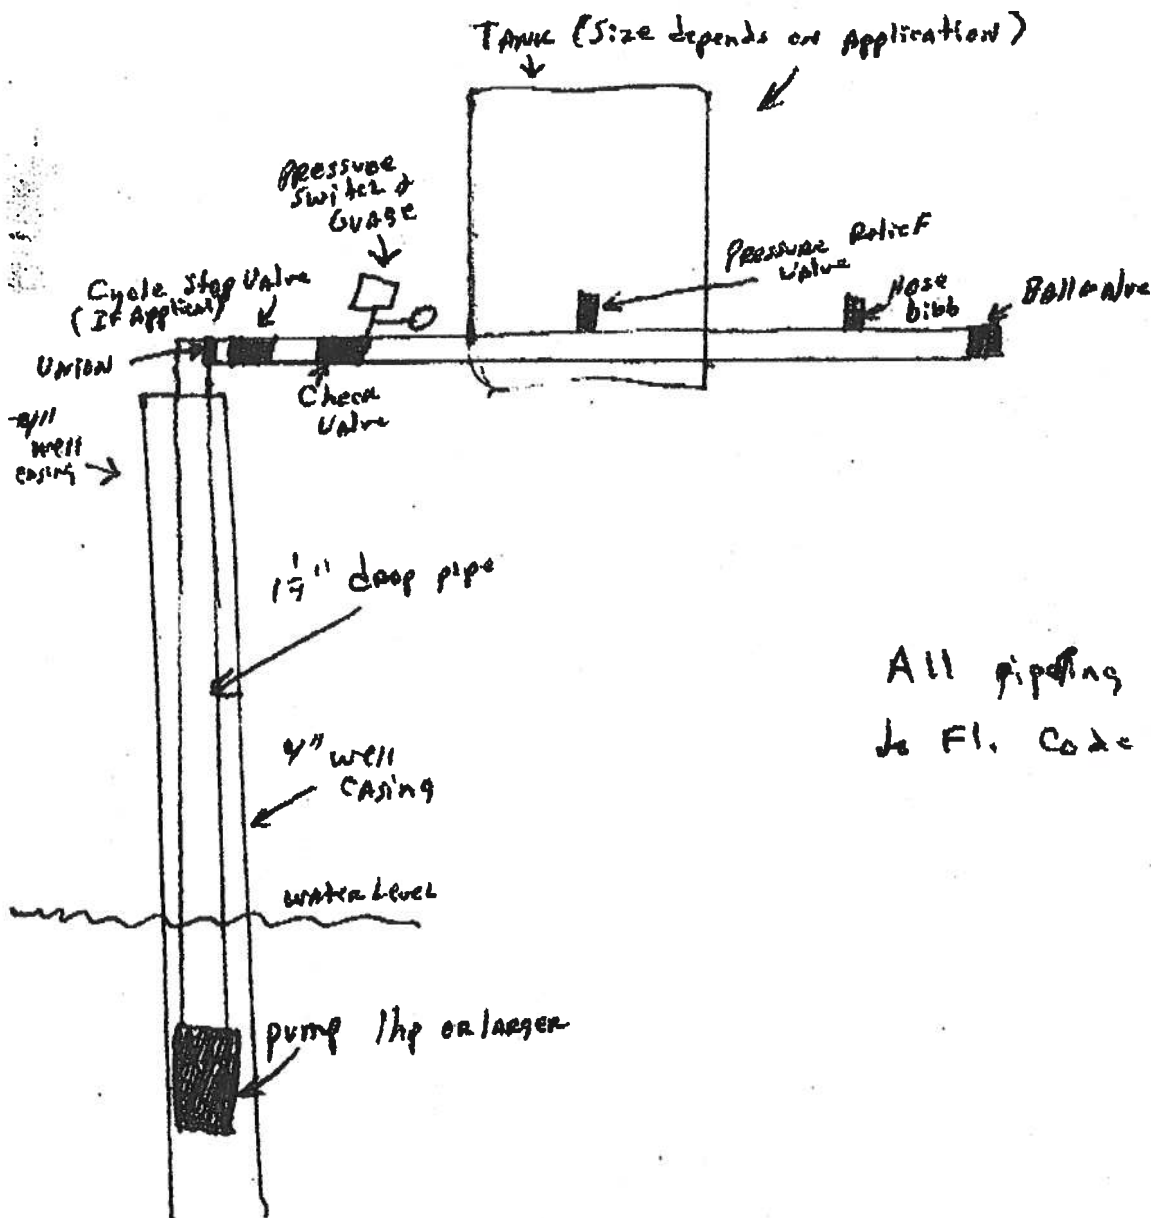 TANK (Size depends on Application)
Pressure
Switch &
Guage
Pressure Relief
Valve
Hose
bibb
Ball valve
Cycle Stop Valve
(If Applical)
Union
Check
Valve
4"
well
casing
1 1/4" drop pipe
4" well
casing
All pipeing
to Fl. Code
water Level
pump 1hp or larger